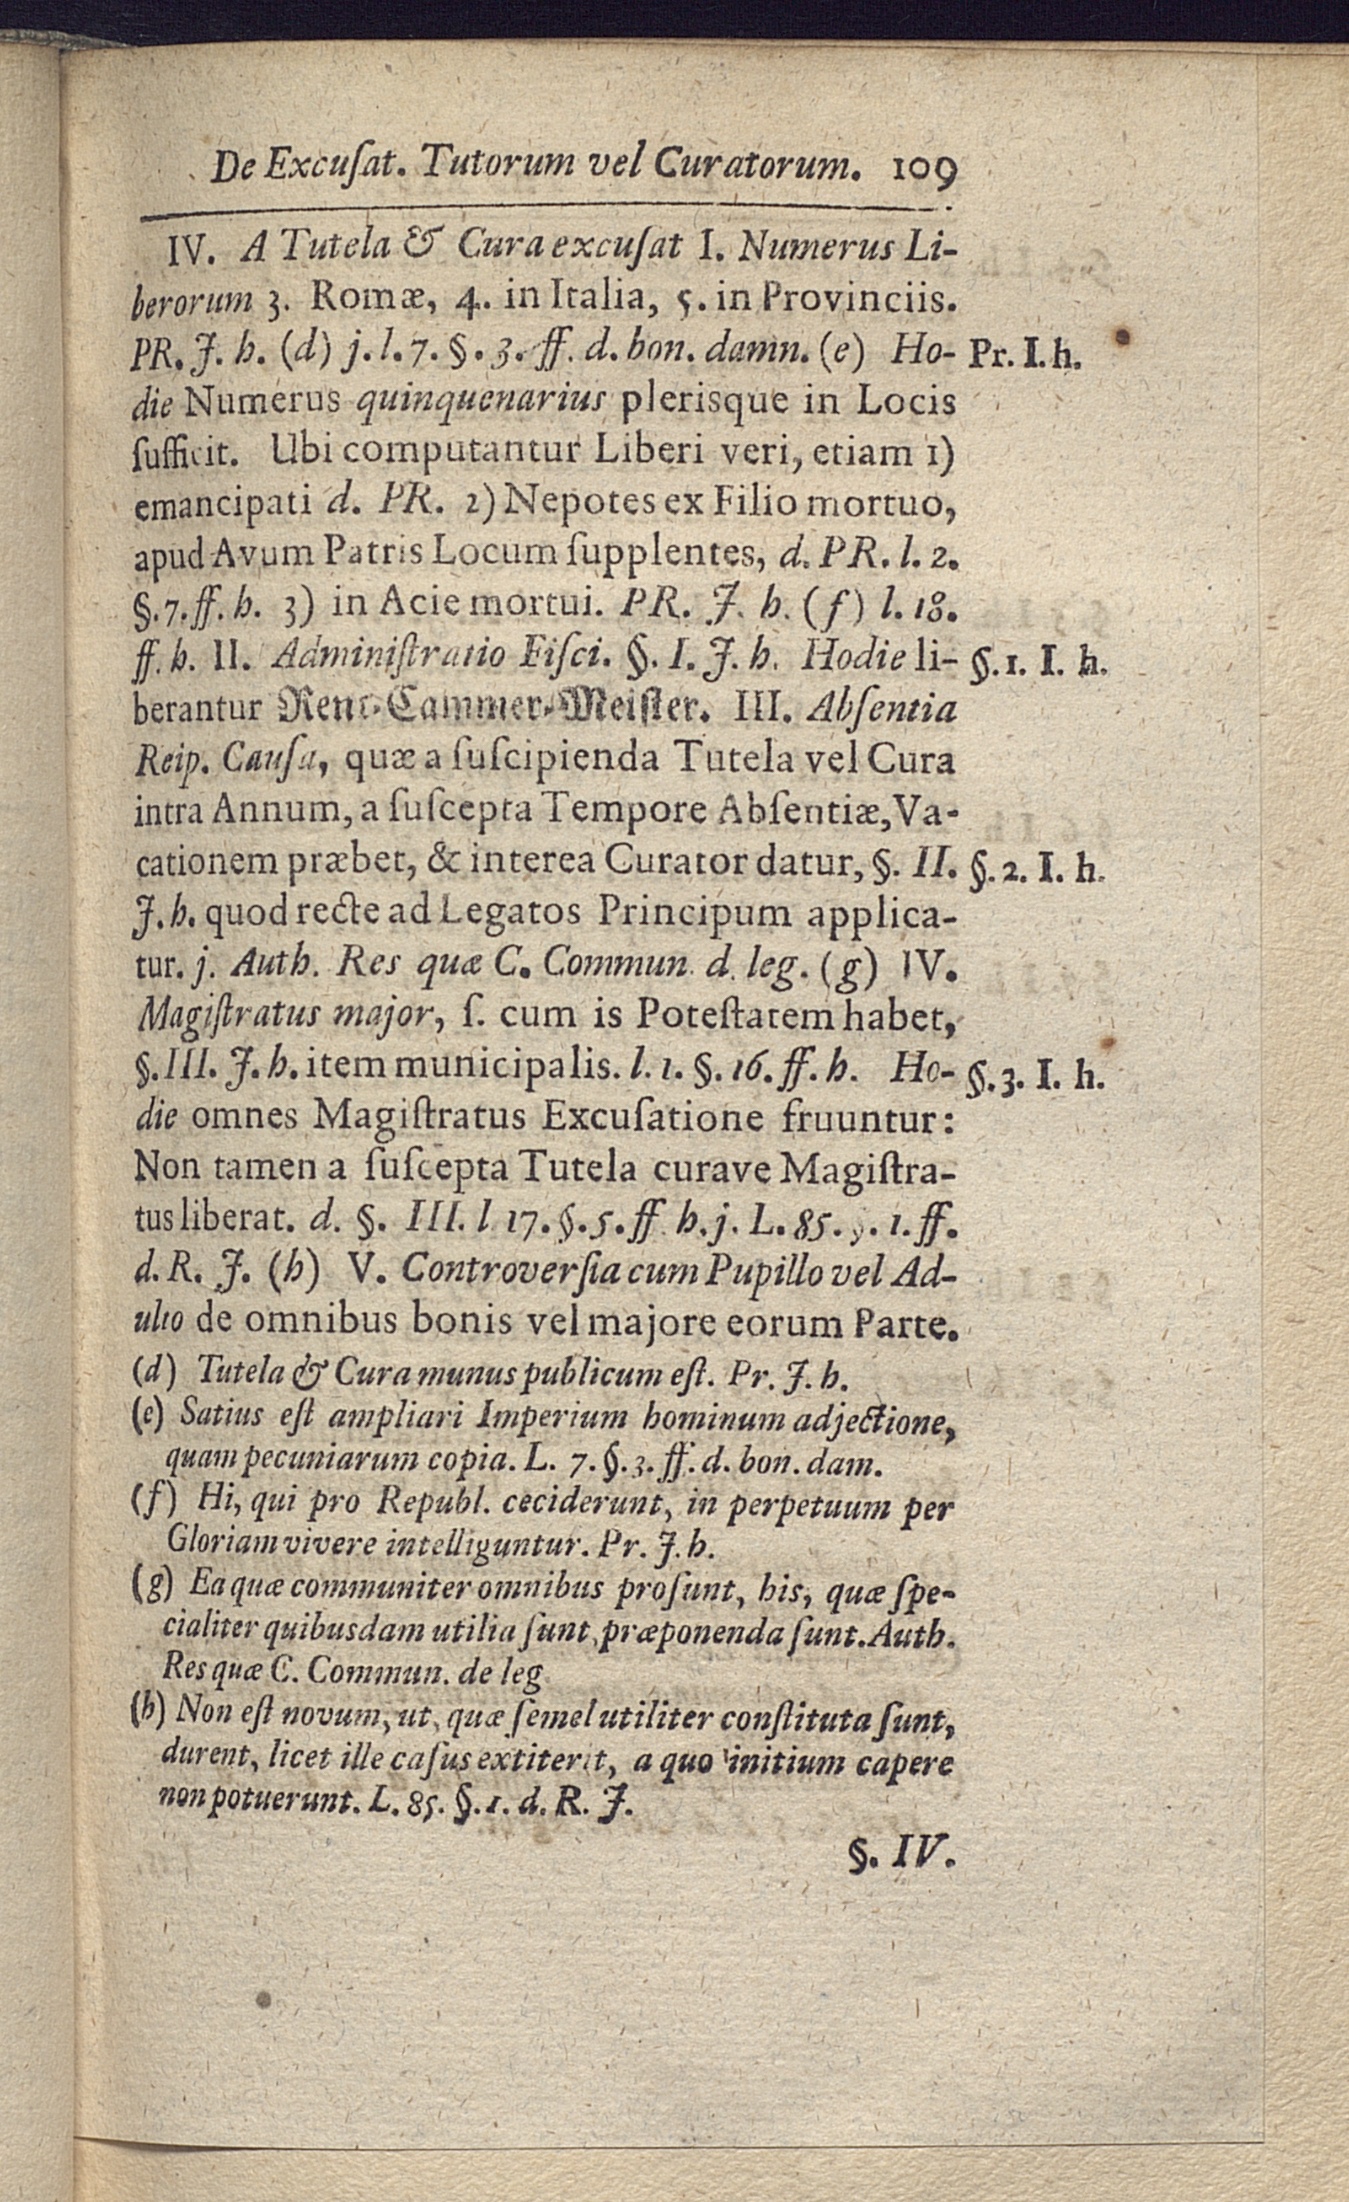 De Excuſat. Tutorum vel Curatorum. 109
IV. A Tutela & Cura excuſat I. Numerus Li-
berorum 3. Romæ, 4. in Italia, 5. in Provinciis.
PR. J. h. (d) j. l. 7. §. 3. ff. d. bon. damn. (e) Ho- Pr. I. h.
die Numerus quinquenarius plerisque in Locis
ſufficit. Ubi computantur Liberi veri, etiam 1)
emancipati d. PR. 2) Nepotes ex Filio mortuo,
apud Avum Patris Locum ſupplentes, d. PR. l. 2.
§. 7. ff. h. 3) in Acie mortui. PR. J. h. (f) l. 18.
ff. h. II. Adminiſtratio Fiſci. §. I. J. h. Hodie li- §. 1. I. h.
berantur Rent-Cammer-Meiſter. III. Abſentia
Reip. Cauſa, quæ a ſuſcipienda Tutela vel Cura
intra Annum, a ſuſcepta Tempore Abſentiæ, Va-
cationem præbet, & interea Curator datur, §. II. §. 2. I. h.
J. h. quod recte ad Legatos Principum applica-
tur. j. Auth. Res quæ C. Commun. d. leg. (g) IV.
Magiſtratus major, ſ. cum is Poteſtatem habet,
§. III. J. h. item municipalis. l. 1. §. 16. ff. h. Ho- §. 3. I. h.
die omnes Magiſtratus Excuſatione fruuntur:
Non tamen a ſuſcepta Tutela curave Magiſtra-
tus liberat. d. §. III. l 17. §. 5. ff h. j. L. 85. §. 1. ff.
d. R. J. (h) V. Controverſia cum Pupillo vel Ad-
ulto de omnibus bonis vel majore eorum Parte.
(d) Tutela & Cura munus publicum eſt. Pr. J. h.
(e) Satius eſt ampliari Imperium hominum adjectione,
quam pecuniarum copia. L. 7. §. 3. ff. d. bon. dam.
(f) Hi, qui pro Republ. ceciderunt, in perpetuum per
Gloriam vivere intelliguntur. Pr. J. h.
(g) Ea quæ communiter omnibus proſunt, his, quæ ſpe-
cialiter quibusdam utilia ſunt, præponenda ſunt. Auth.
Res quæ C. Commun. de leg
(h) Non eſt novum, ut, quæ ſemel utiliter conſtituta ſunt,
durent, licet ille caſus extiterit, a quo initium capere
non potuerunt. L. 85. §. 1. d. R. J.
§. IV.